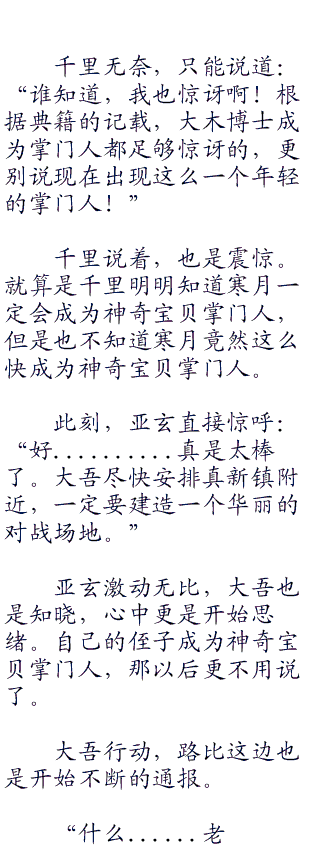 千里无奈，只能说道：
“谁知道，我也惊讶啊！根
据典籍的记载，大木博士成
为掌门人都足够惊讶的，更
别说现在出现这么一个年轻
的掌门人！”
千里说着，也是震惊。
就算是千里明明知道寒月一
定会成为神奇宝贝掌门人，
但是也不知道寒月竟然这么
快成为神奇宝贝掌门人。
此刻，亚玄直接惊呼：
“好..........真是太棒
了。大吾尽快安排真新镇附
近，一定要建造一个华丽的
对战场地。”
亚玄激动无比，大吾也
是知晓，心中更是开始思
绪。自己的侄子成为神奇宝
贝掌门人，那以后更不用说
了。
大吾行动，路比这边也
是开始不断的通报。
“什么......老